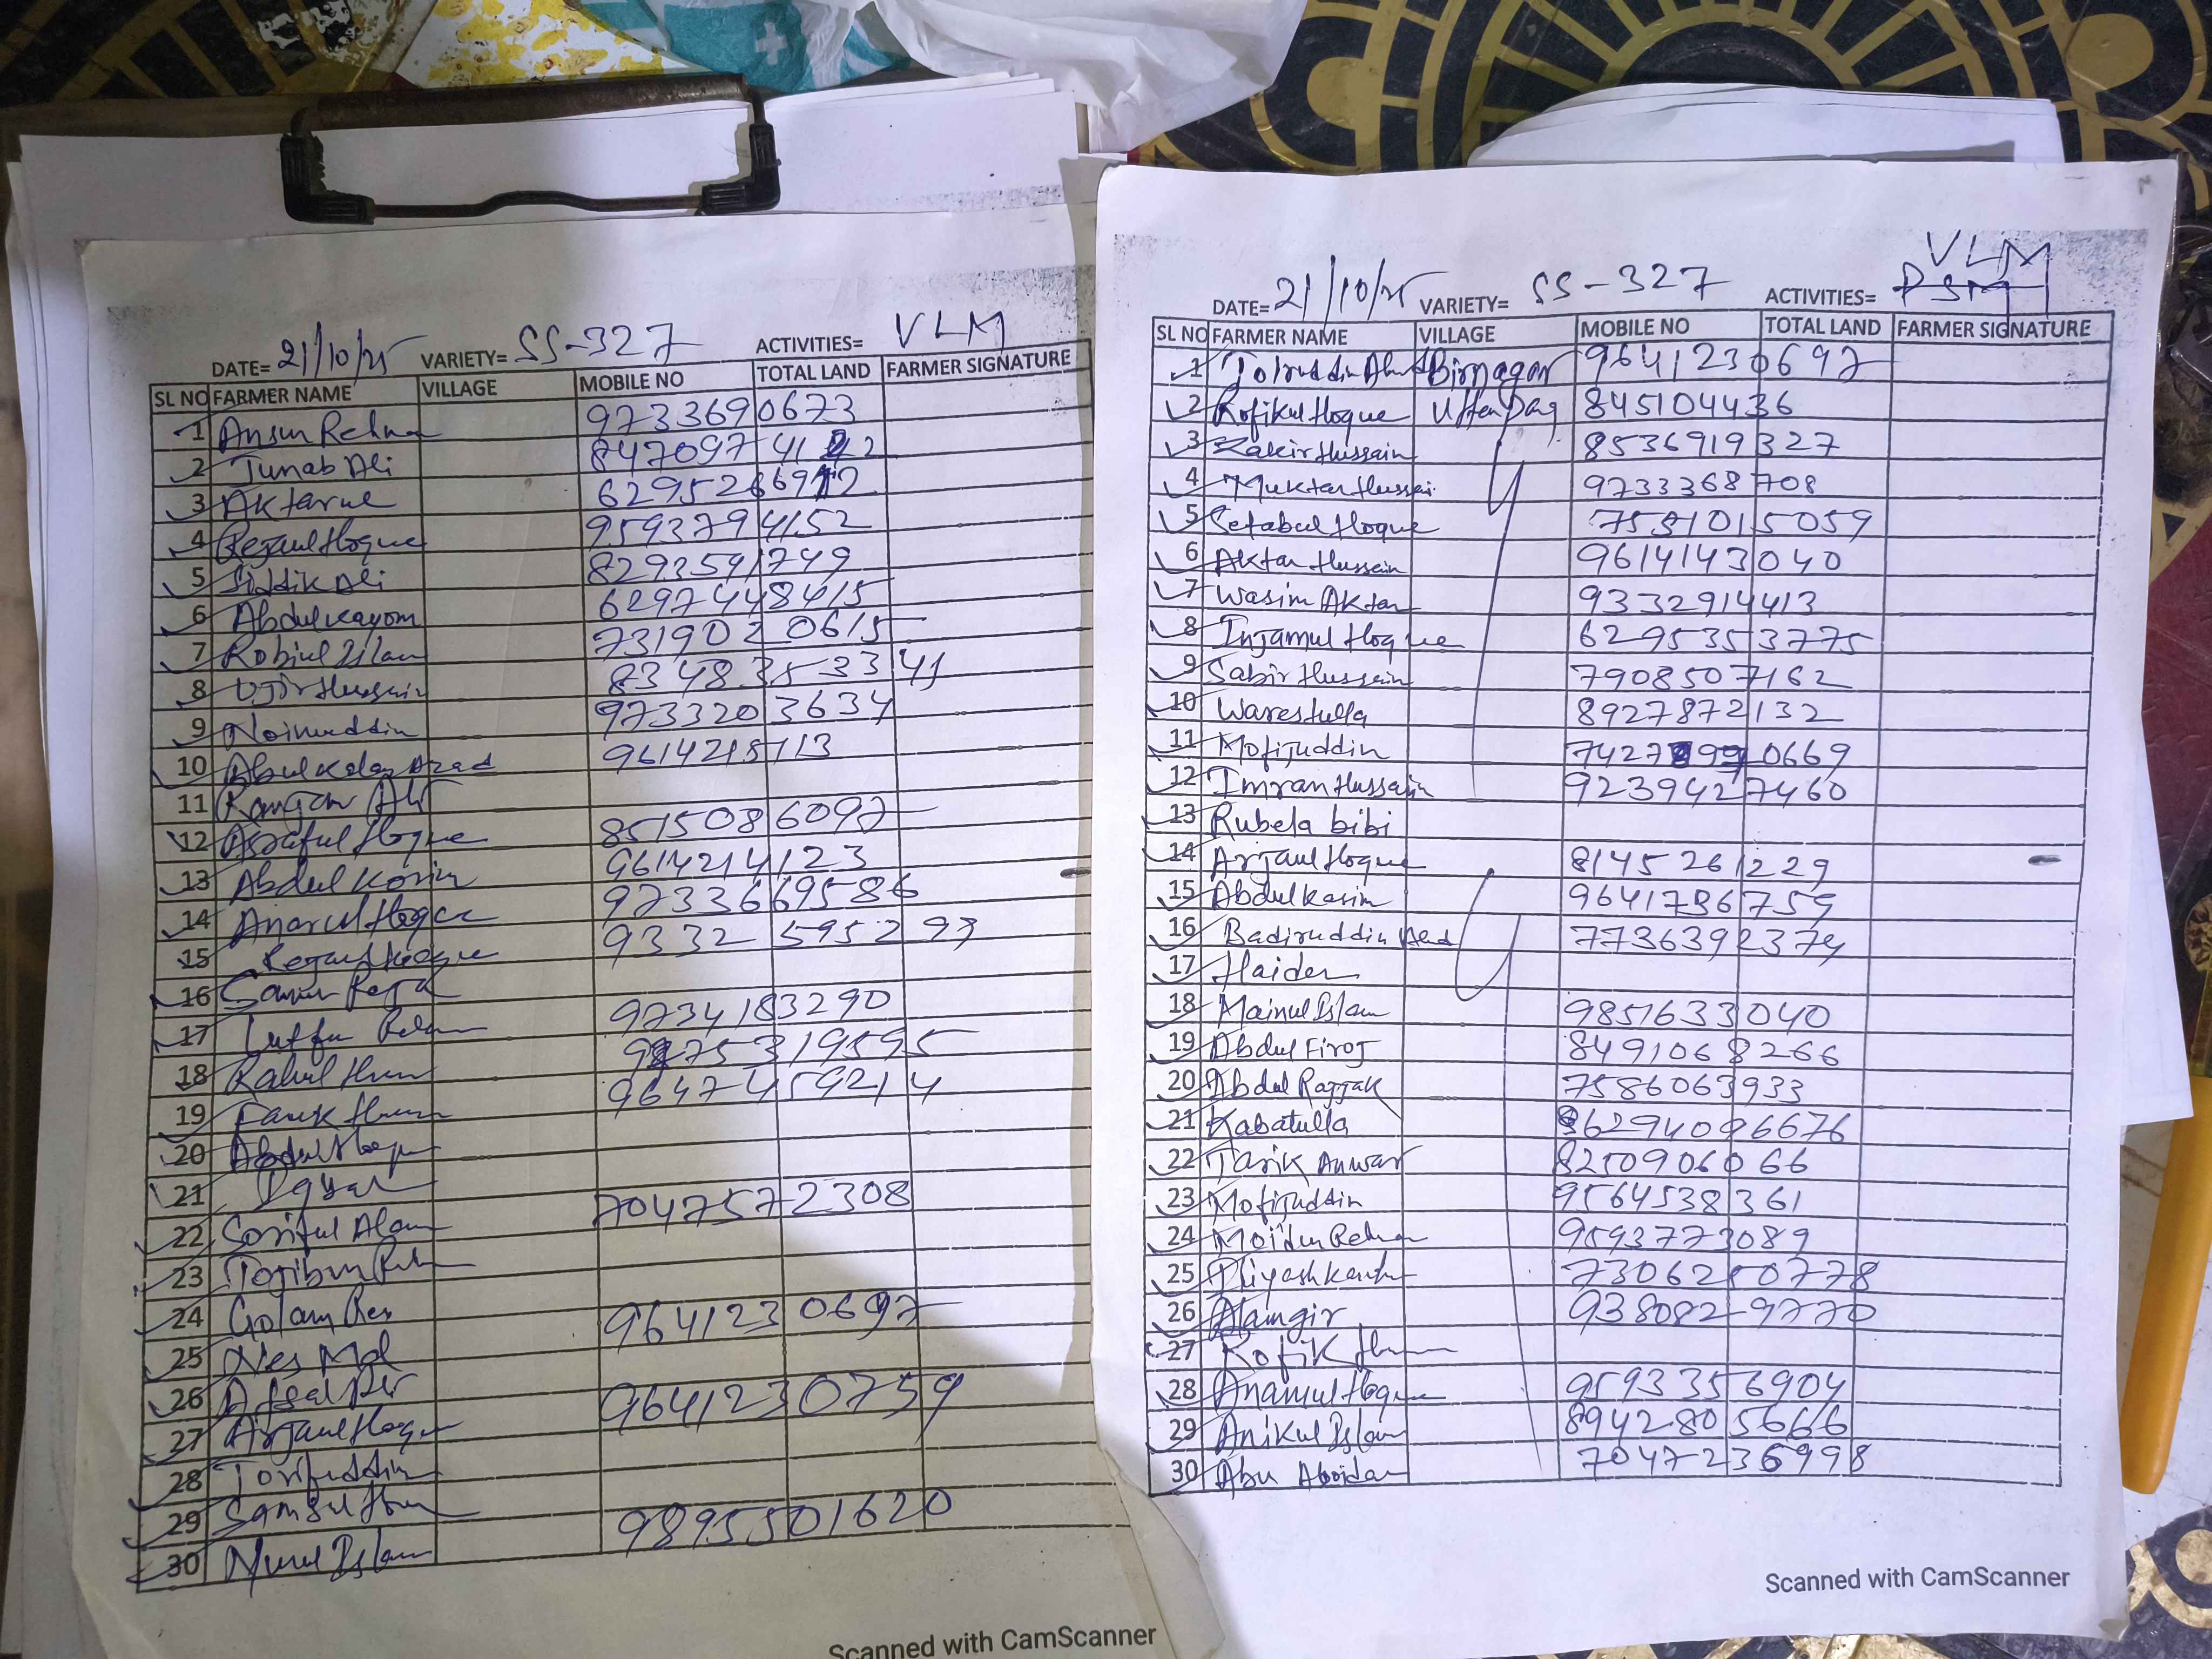 DATE= 21/10/25 VARIETY= SS-327 ACTIVITIES= VLM
SL NO FARMER NAME VILLAGE MOBILE NO TOTAL LAND FARMER SIGNATURE
1 Ansur Rehma 9733690673
2 Junab Ali 8470974122
3 Aktarul 6295266912
4 Rejaul Hoque 9593794152
5 Siddik Ali 8293591749
6 Abdul Kayom 6297448415
7 Robiul Islam 7319020615
8 Ujir Hussain 8348353341
9 Noinuddin 9733203634
10 Abul Kalam Azad 9614215113
11 Ramjan Ali
12 Asraful Hoque 8515086097
13 Abdul Korim 9614214123
14 Anarul Hoque 9733669586
15 Rejaul Hoque 9332595293
16 Samim Reja
17 Lutfu Rehm 9734183290
18 Rahul 9875319595
19 Faruk 9647459214
20 Abdul Hoque
21
22 Soriful Alam 7047572308
23 Tojibur
24 Golam 9641230697
25 Nes Md
26 Afsal
27 Arjaul Hoque 9641230759
28 Torifuddin
29 Samsul
30 Nurul Islam 9895501620
Scanned with CamScanner
DATE= 21/10/25 VARIETY= SS-327 ACTIVITIES= VLM
SL NO FARMER NAME VILLAGE MOBILE NO TOTAL LAND FARMER SIGNATURE
1 Birnagar 9641230697
2 Rofikul Hoque 845104436
3 Zakir Hussain 8536919327
4 Muktar Hussai 9733368708
5 Setabul Hoque 7581015059
6 Aktar Hussein 9614143040
7 Wasim Aktar 9332914413
8 Injamul Hoque 6295353775
9 Sabir Hussein 7908507162
10 Warestulla 8927872132
11 Mofijuddin 7427990669
12 Imran Hussain 9239427460
13 Rubela bibi
14 Arjaul Hoque 8145261229
15 Abdul Karim 9641786759
16 Badiruddin 7736392374
17 Haider
18 Mainul Islam 9851633040
19 Abdul Firoj 8491068266
20 Abdul Rajjak 7586063933
21 Kabatulla 6294096676
22 Tarik Anwar 8250906066
23 Mofijuddin 9564538361
24 Moidur Rehma 9593773089
25 7306250778
26 Alamgir 9380829770
27 Rofik
28 Anamul Hoque 9593356904
29 Anikul Islam 8942805666
30 Abu 7047236998
Scanned with CamScanner